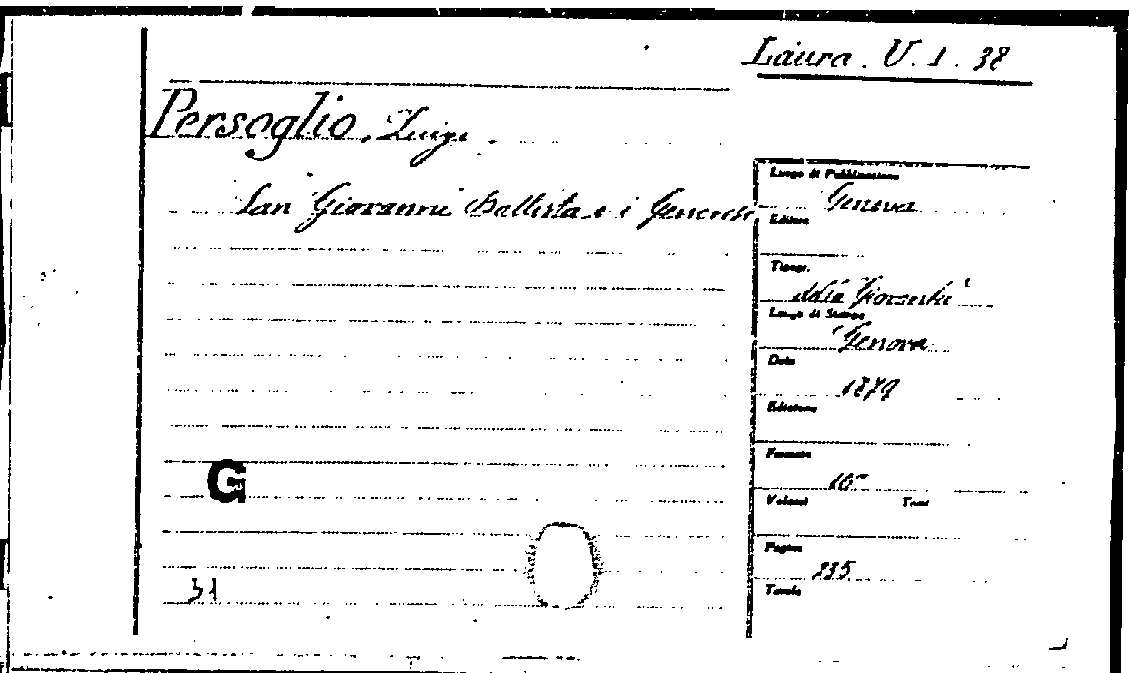 Laura. V. 1. 38
Persoglio, Luigi.
San Giovanni Battista e i Genovesi
Luogo di Pubblicazione
Genova
Editore
Tipogr.
della Gioventù
Luogo di Stampa
Genova
Data
1879
Edizione
Formato
16°
Volumi Tomi
Pagine
235
Tavole
G
31